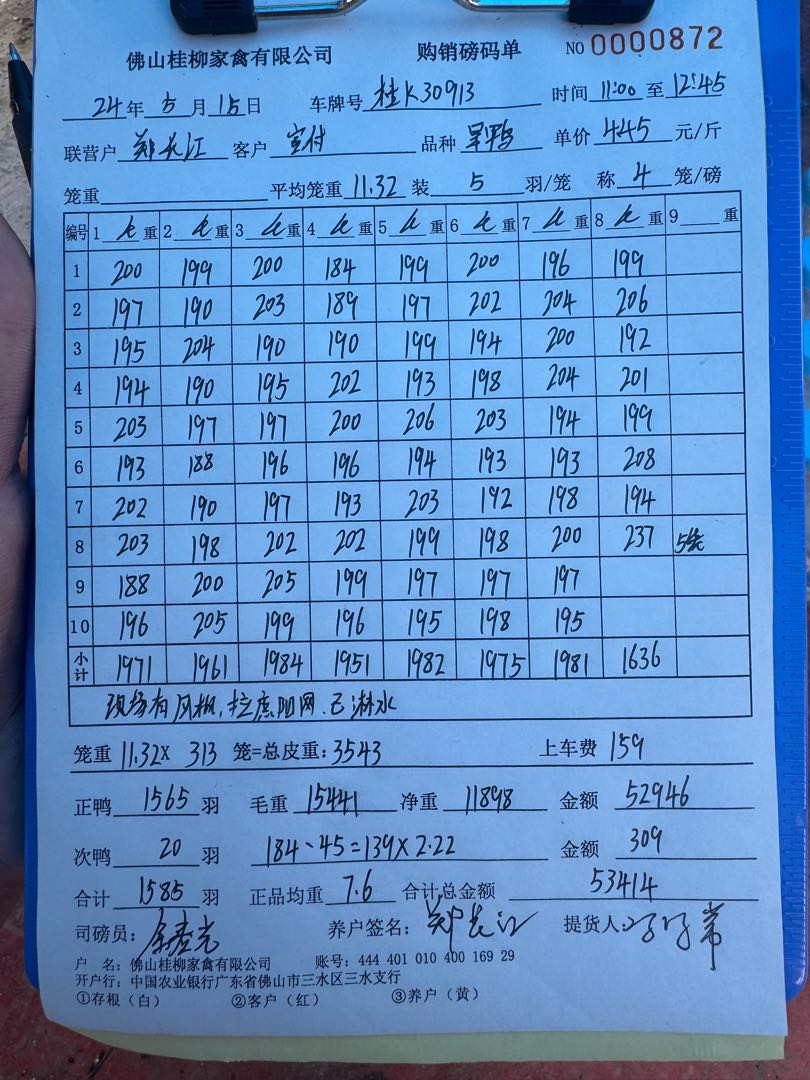 佛山桂柳家禽有限公司 购销磅码单 NO 0000872
24年5月15日 车牌号 桂K30913 时间 11:00 至 12:45
联营户 郑长江 客户 宝付 品种 呆鸭 单价 445 元/斤
笼重 平均笼重 11.32 装 5 羽/笼 称 4 笼/磅
编号 1 毛 重 2 毛 重 3 毛 重 4 毛 重 5 毛 重 6 毛 重 7 毛 重 8 毛 重 9 重
1 200 199 200 184 199 200 196 199
2 197 190 203 189 197 202 204 206
3 195 204 190 190 199 194 200 192
4 194 190 195 202 193 198 204 201
5 203 197 197 200 206 203 194 199
6 193 188 196 196 194 193 193 208
7 202 190 197 193 203 192 198 194
8 203 198 202 202 199 198 200 237 5笼
9 188 200 205 199 197 197 197
10 196 205 199 196 195 198 195
小计 1971 1961 1984 1951 1982 1975 1981 1636
现场有风机,拉遮阳网.已淋水
笼重 11.32X 313 笼=总皮重: 3543 上车费 159
正鸭 1565 羽 毛重 15441 净重 11898 金额 52946
次鸭 20 羽 184-45=139X2.22 金额 309
合计 1585 羽 正品均重 7.6 合计总金额 53414
司磅员: 养户签名: 郑长江 提货人:
户 名: 佛山桂柳家禽有限公司 账号: 444 401 010 400 169 29
开户行: 中国农业银行广东省佛山市三水区三水支行
①存根(白) ②客户(红) ③养户(黄)